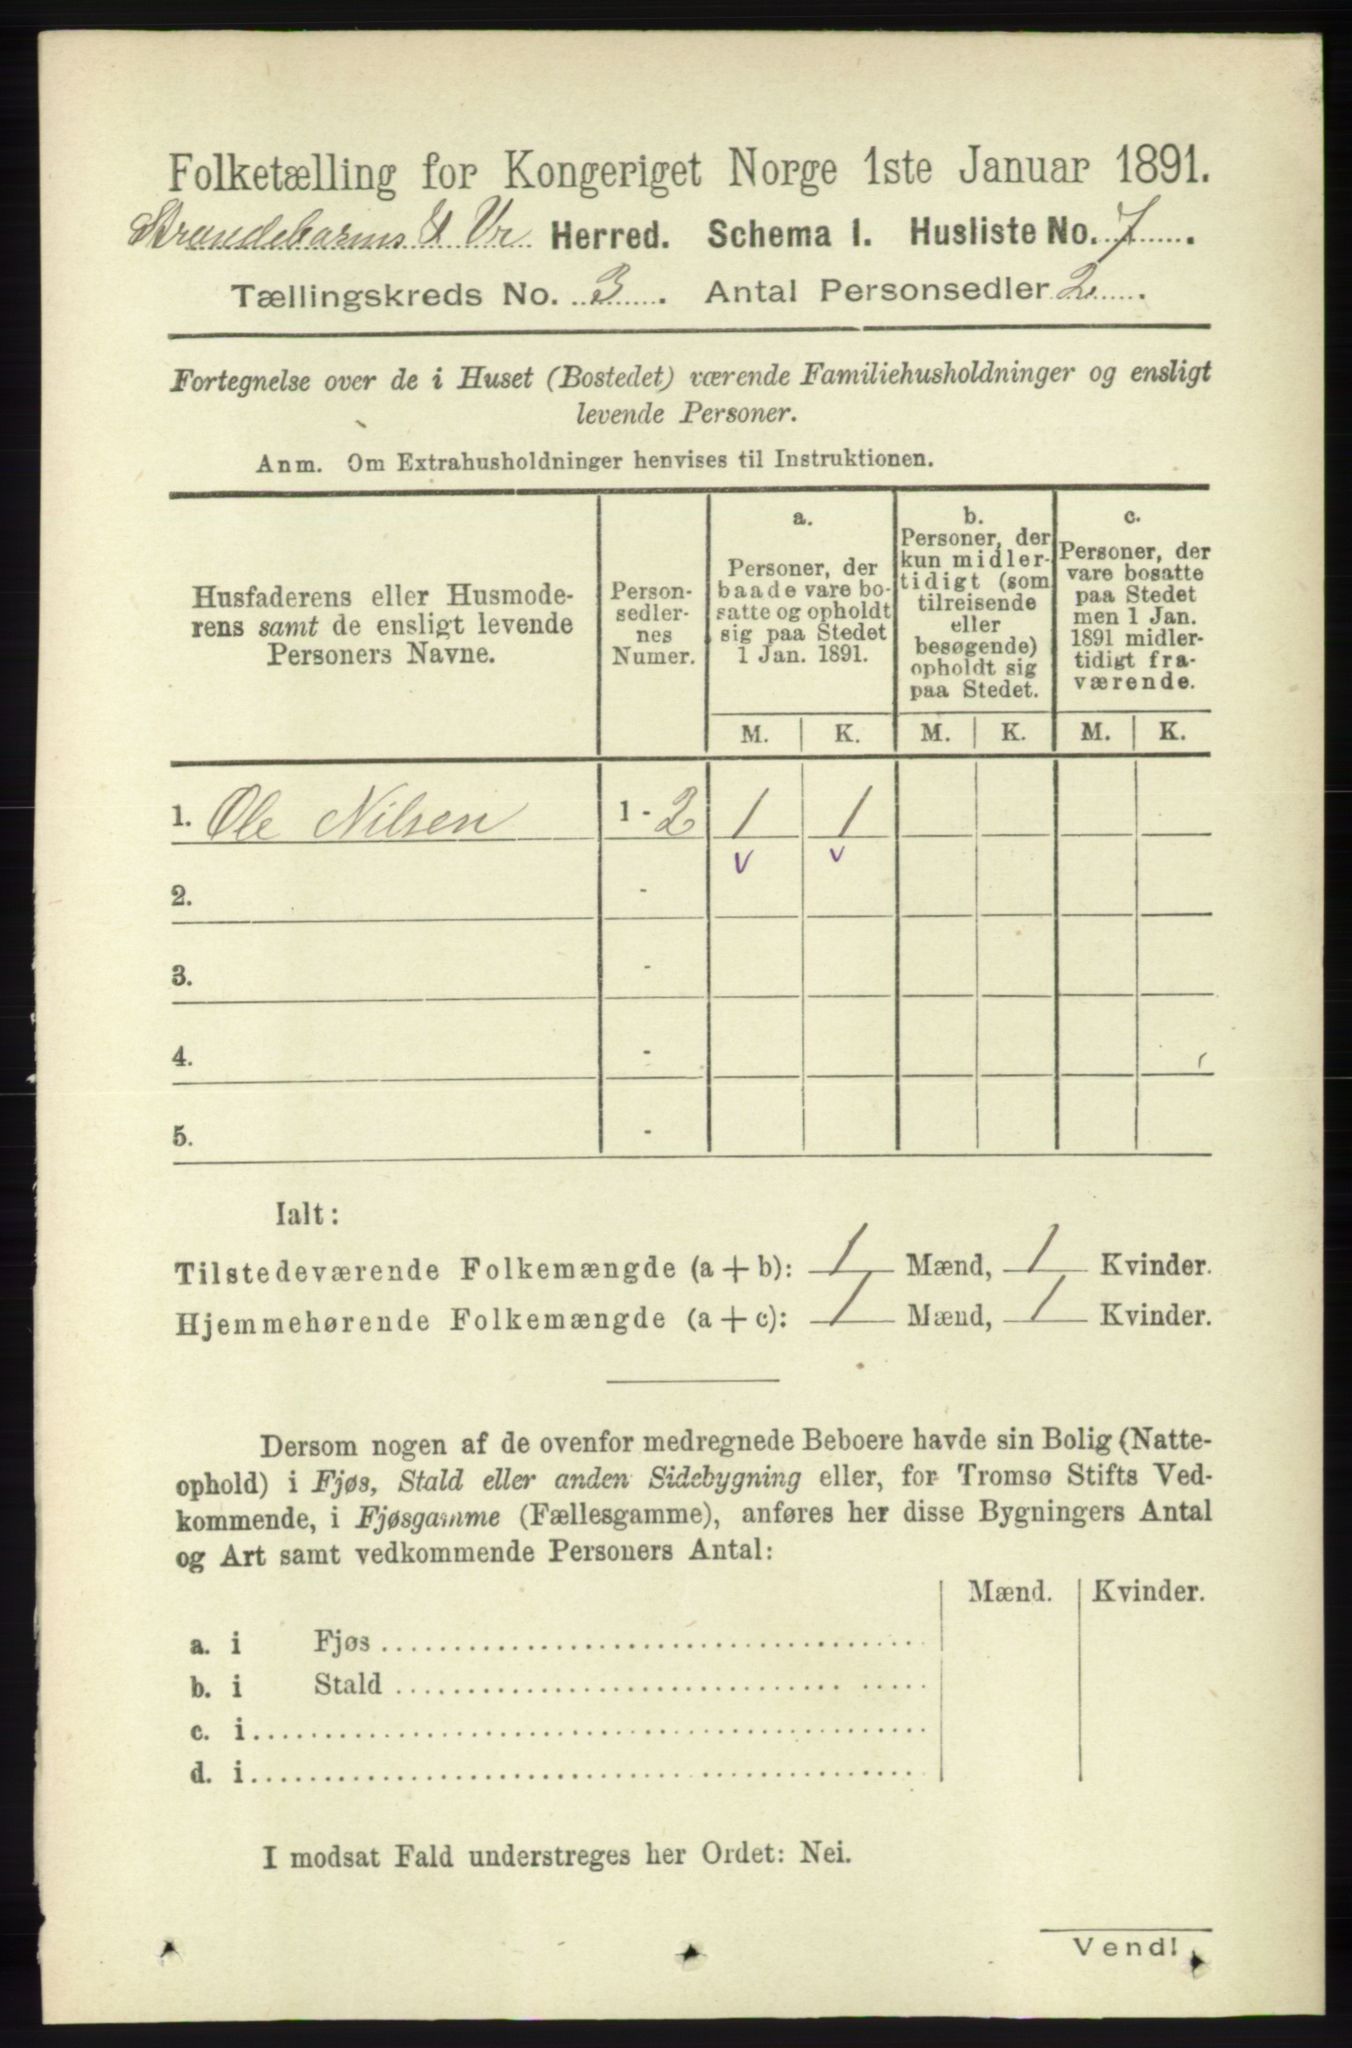 Folketælling for Kongeriget Norge 1ste Januar 1891.
Strandebarms & Vr Herred. Schema I. Husliste No. 7.
Tællingskreds No. 3. Antal Personsedler 2.
Fortegnelse over de i Huset (Bostedet) værende Familiehusholdninger og ensligt
levende Personer.
Anm. Om Extrahusholdninger henvises til Instruktionen.
Husfaderens eller Husmode-
rens samt de ensligt levende
Personers Navne.
Person-
sedler-
nes
Numer.
a.
Personer, der
baade vare bo-
satte og opholdt
sig paa Stedet
1 Jan. 1891.
b.
Personer, der
kun midler-
tidigt (som
tilreisende
eller
besøgende)
opholdt sig
paa Stedet.
c.
Personer, der
vare bosatte
paa Stedet
men 1 Jan.
1891 midler-
tidigt fra-
værende.
M. K. M. K. M. K.
1. Ole Nilsen 1 - 2 1 1
v v
2. -
3. -
4. -
5. -
Ialt:
Tilstedeværende Folkemængde (a + b): 1 Mænd, 1 Kvinder.
Hjemmehørende Folkemængde (a + c): 1 Mænd, 1 Kvinder.
Dersom nogen af de ovenfor medregnede Beboere havde sin Bolig (Natte-
ophold) i Fjøs, Stald eller anden Sidebygning eller, for Tromsø Stifts Ved-
kommende, i Fjøsgamme (Fællesgamme), anføres her disse Bygningers Antal
og Art samt vedkommende Personers Antal:
Mænd. Kvinder.
a. i Fjøs
b. i Stald
c. i
d. i
I modsat Fald understreges her Ordet: Nei.
Vend!